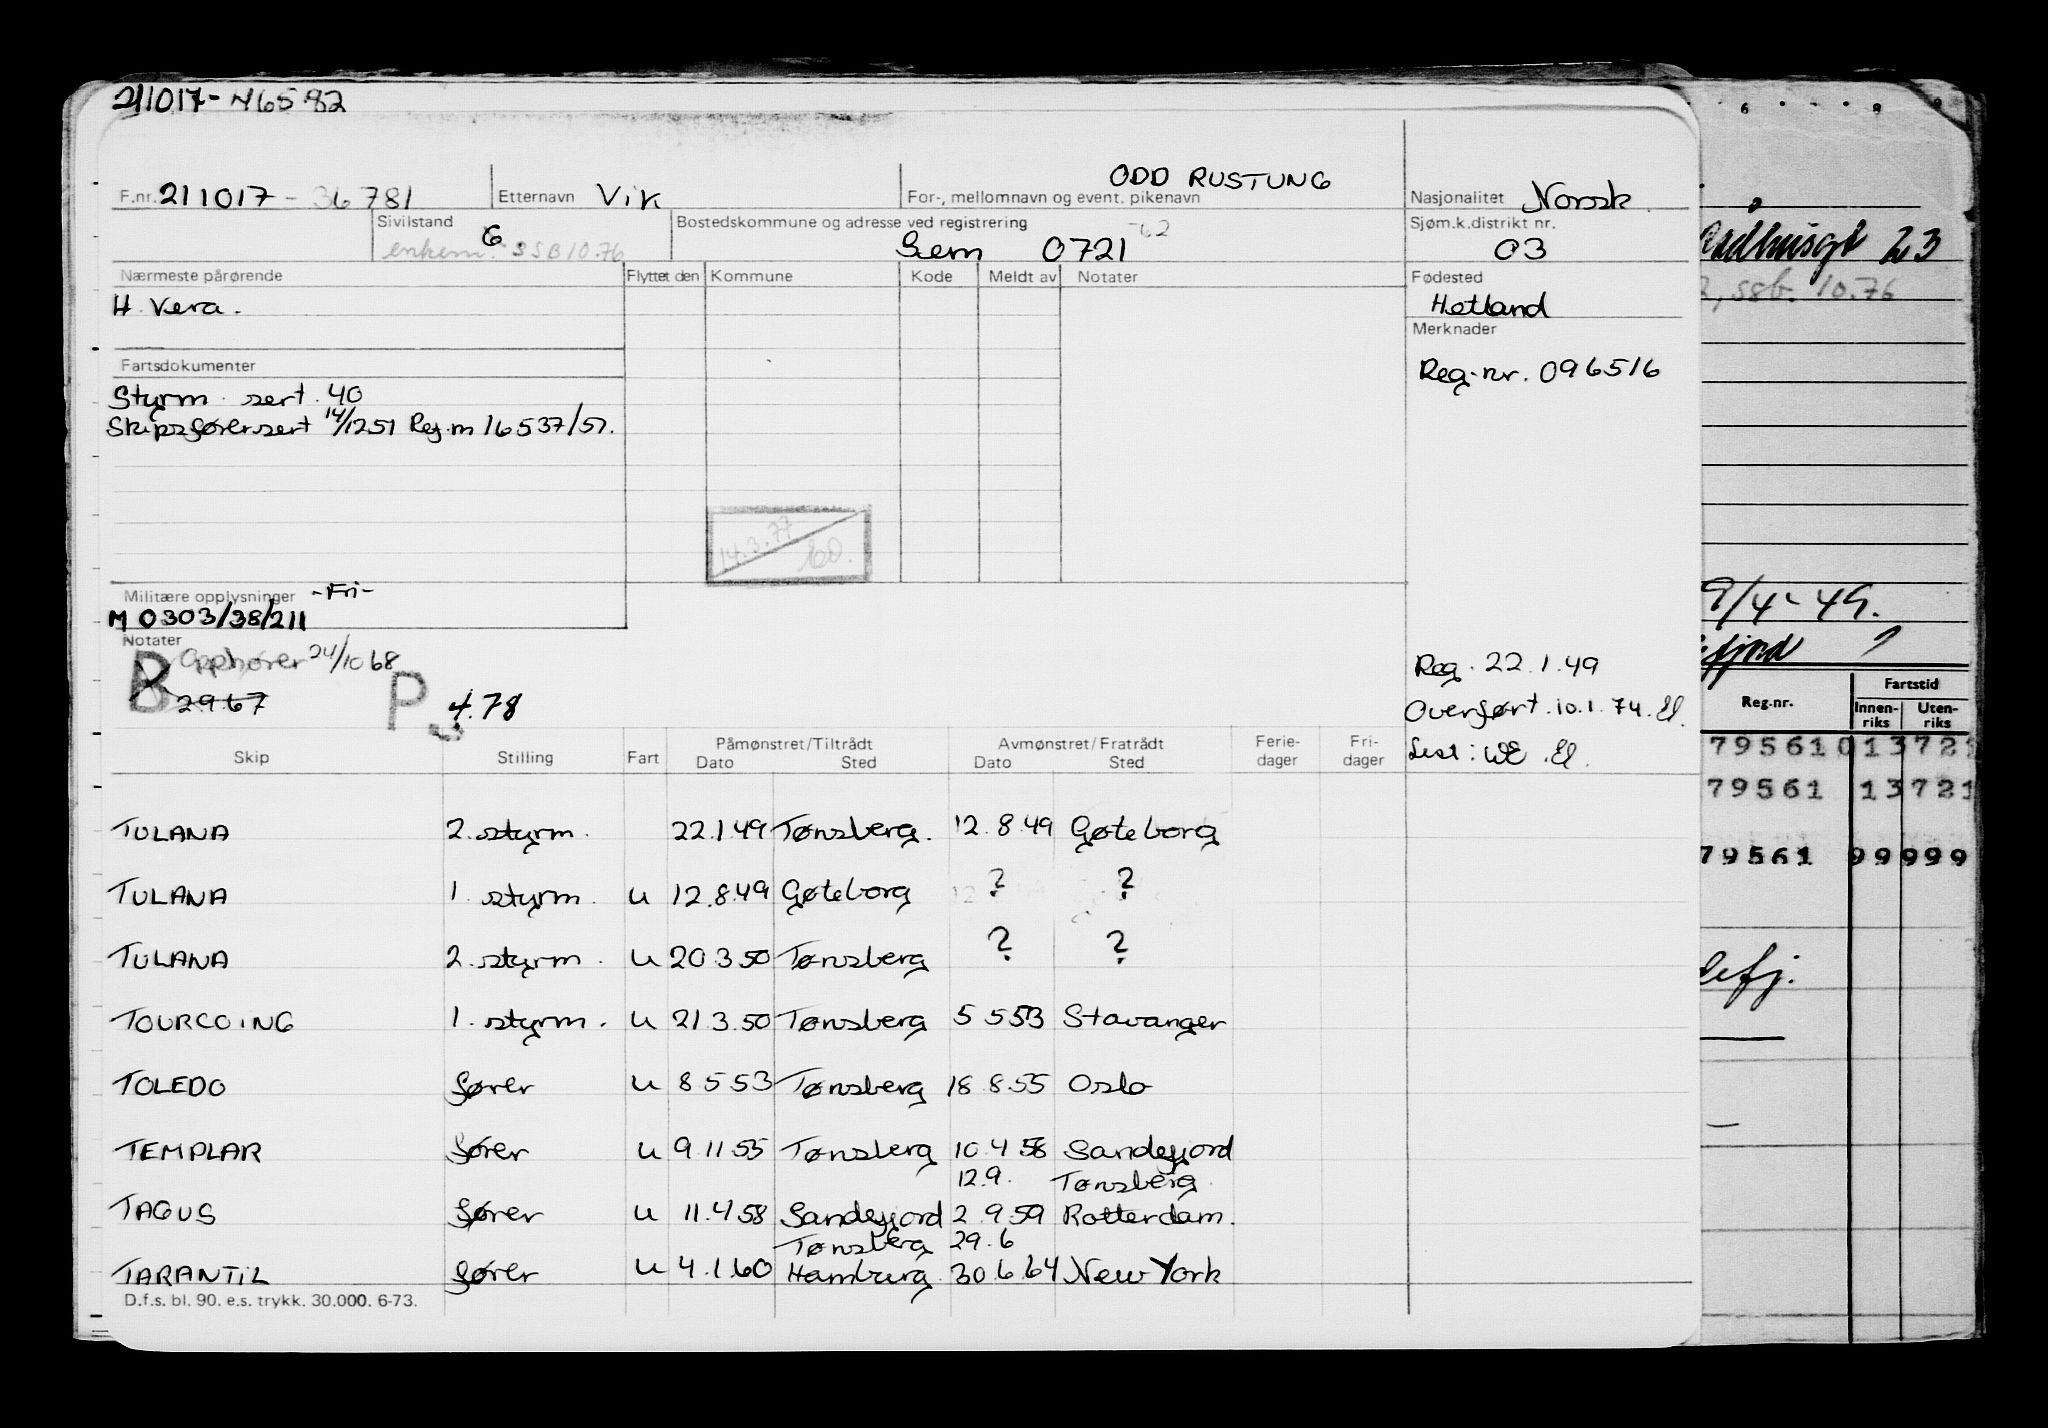 211017-46582
F.nr. 211017-36781 Etternavn Vik For-, mellomnavn og event. pikenavn ODD RUSTUNG Nasjonalitet Norsk
Sivilstand G enkem. SSB 10.76 Bostedskommune og adresse ved registrering Sem 0721 -62 Sjøm.k.distrikt nr. 03
Nærmeste pårørende Flyttet den Kommune Kode Meldt av Notater Fødested
H. Vera. Hetland
Merknader
Fartsdokumenter Reg.nr. 096516
Styrm. sert. 40
Skipsførersert 14/1251 Reg.nr 16537/51.
14.3.77
Militære opplysninger -Fri-
M 0303/38/211
Notater
B Opphører 24/10 68 Reg. 22.1.49
29.67 P 4.78 Overført. 10.1.74. El.
Sist: WE. El.
Skip Stilling Fart Påmønstret/Tiltrådt Dato Sted Avmønstret/Fratrådt Dato Sted Ferie-dager Fri-dager
TULANA 2. styrm. 22.1.49 Tønsberg. 12.8.49 Gøteborg
TULANA 1. styrm. u 12.8.49 Gøteborg ? ?
TULANA 2. styrm. u 20.3.50 Tønsberg ? ?
TOURCOING 1. styrm. u 21.3.50 Tønsberg 5.5.53 Stavanger
TOLEDO fører u 8.5.53 Tønsberg 18.8.55 Oslo
TEMPLAR fører u 9.11.55 Tønsberg 10.4.58 Sandefjord
12.9. Tønsberg.
TAGUS fører u 11.4.58 Sandefjord 2.9.59 Rotterdam.
Tønsberg 29.6
TARANTIL fører u 4.1.60 Hamburg 30.6.64 New York
D.f.s. bl. 90. e.s. trykk. 30.000. 6-73.
23
ssb. 10.76
9/4-49.
fjord ?
Reg.nr. Fartstid
Innen-riks Uten-riks
795610 13 721
79561 13 721
79561 99 999
efj.